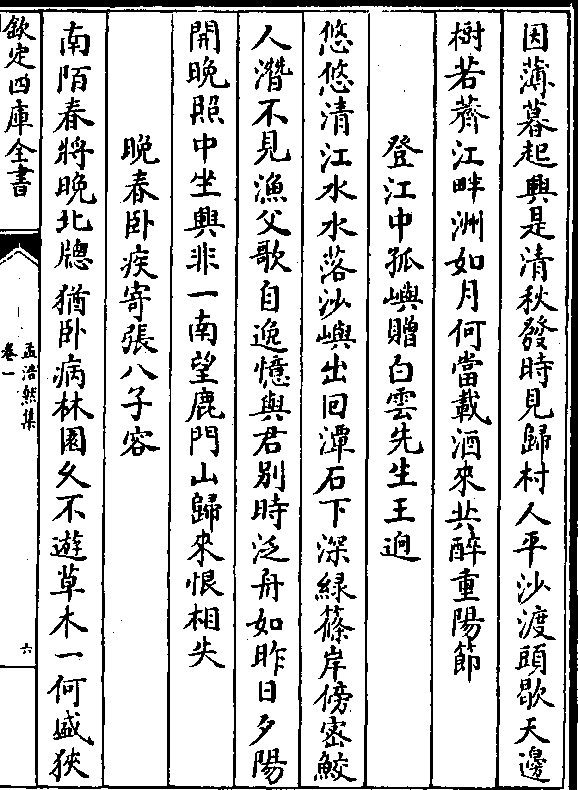 因薄暮起興是清秋發時見歸村人平沙渡頭歇天邊
樹若薺江畔洲如月何當載酒來共醉重陽節
登江中孤嶼贈白雲先生王逈
悠悠清江水水落沙嶼出回潭石下深綠篠岸傍密鮫
人潛不見漁父歌自逸憶與君別時泛舟如昨日夕陽
開晚照中坐興非一南望鹿門山歸來恨相失
晚春卧疾寄張八子容
南陌春將晚北牎猶卧病林園久不遊草木一何盛狹
欽定四庫全書
孟浩然集
卷一
六